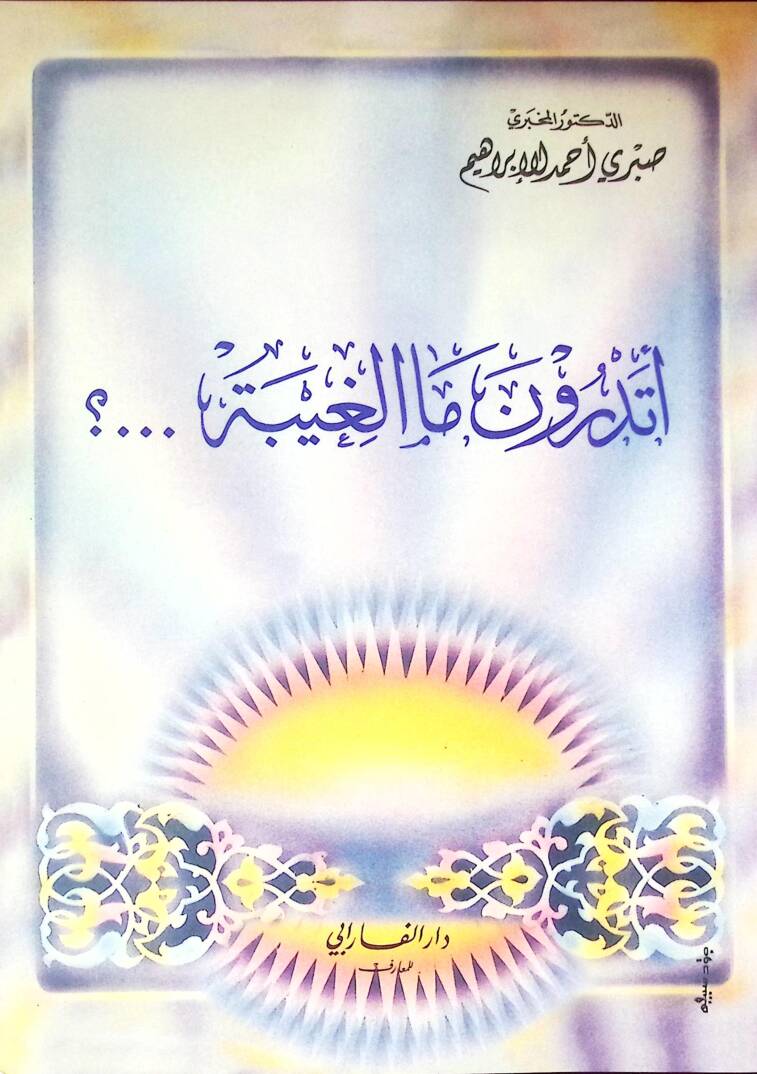 الدّكتور المخبري
صبْري أحمد الإبراهيم
أتَدْرُوْنَ مَا الْغِيْبَةُ ...؟
دار الفارابي
للمعارف